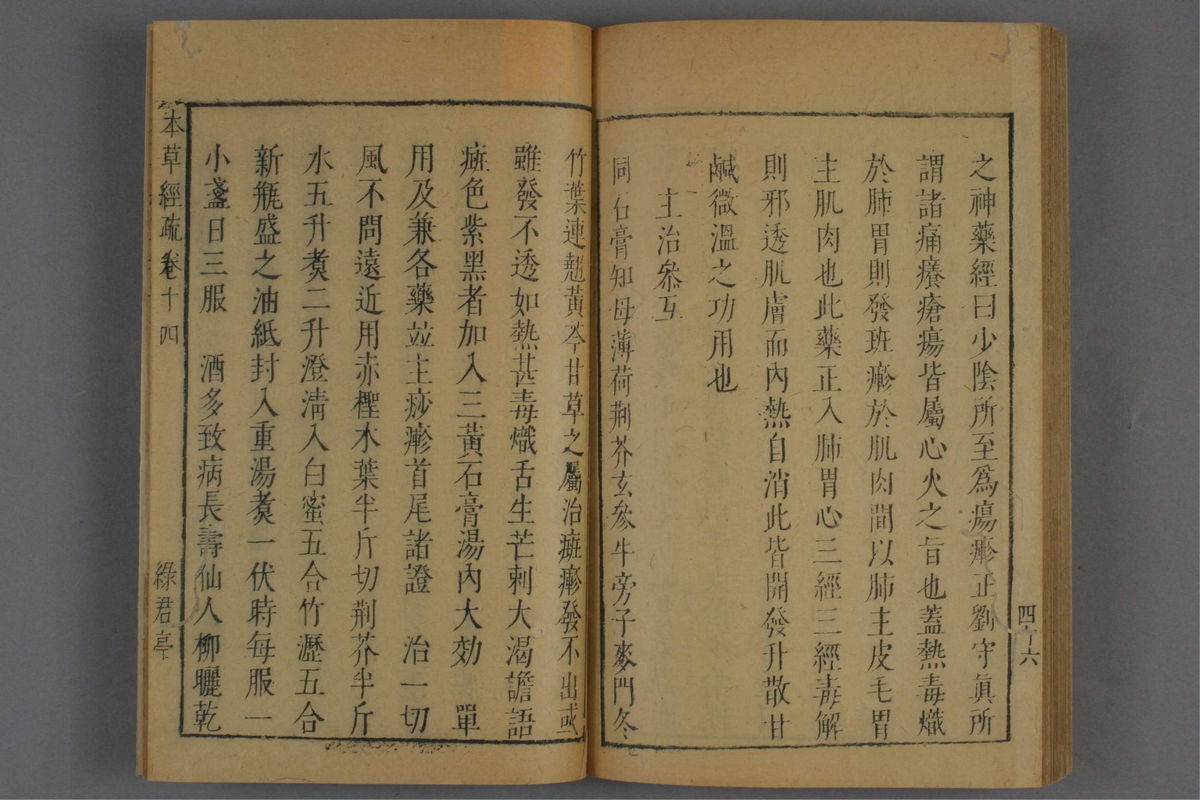 之神藥經曰少陰所至爲瘍疹正劉守眞所
謂諸痛癢瘡瘍皆屬心火之旨也蓋熱毒熾
於肺胃則發班疹於肌肉間以肺主皮毛胃
主肌肉也此藥正入肺胃心三經三經毒解
則邪透肌膚而內熱自消此皆開發升散甘
鹹微溫之功用也
主治叅互
同石膏知母薄荷荆芥玄參牛旁子麥門冬
四十六
竹葉連翹黃芩甘草之屬治斑疹發不出或
雖發不透如熱甚毒熾舌生芒刺大渴譫語
斑色紫黑者加入三黃石膏湯內大効　單
用及兼各藥竝主痧疹首尾諸證　治一切
風不問遠近用赤檉木葉半斤切荆芥半斤
水五升煑二升澄淸入白蜜五合竹瀝五合
新甁盛之油紙封入重湯煑一伏時每服一
小盞日三服　酒多致病長壽仙人柳曬乾
本草經疏　卷十四　綠君亭